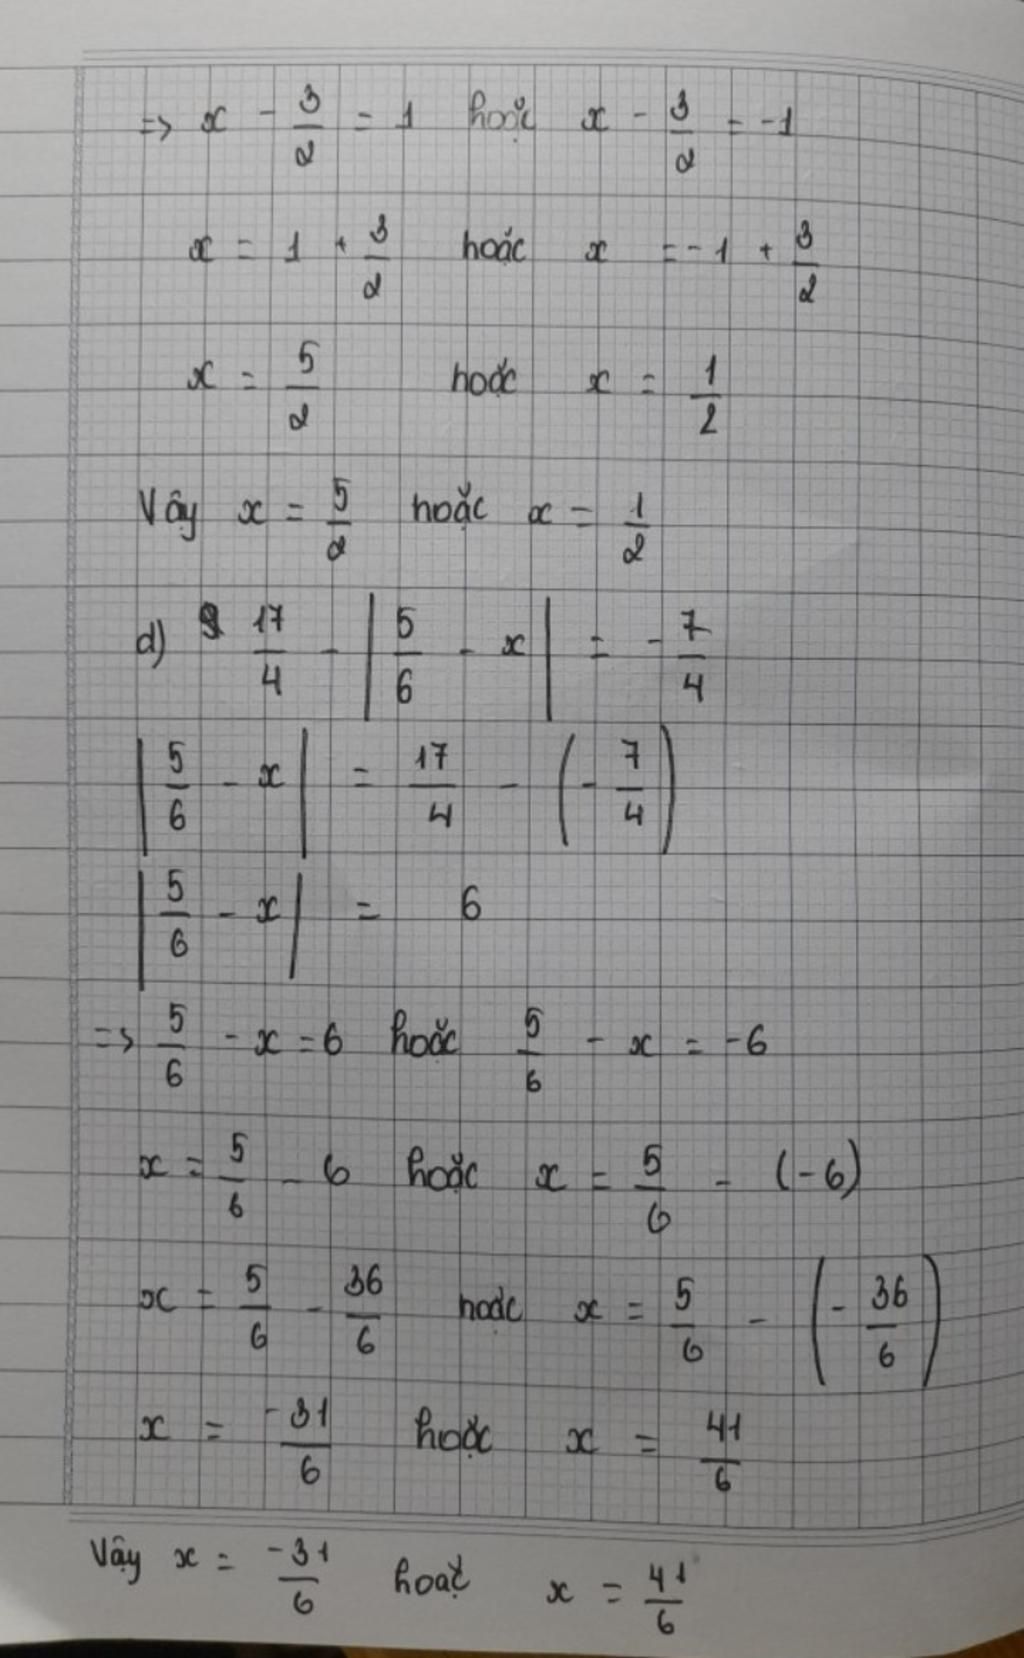 => x - 3/2 = 1 hoặc x - 3/2 = -1
x = 1 + 3/2 hoặc x = -1 + 3/2
x = 5/2 hoặc x = 1/2
Vậy x = 5/2 hoặc x = 1/2
d) 17/4 - |5/6 - x| = -7/4
|5/6 - x| = 17/4 - (-7/4)
|5/6 - x| = 6
=> 5/6 - x = 6 hoặc 5/6 - x = -6
x = 5/6 - 6 hoặc x = 5/6 - (-6)
x = 5/6 - 36/6 hoặc x = 5/6 - (-36/6)
x = -31/6 hoặc x = 41/6
Vậy x = -31/6 hoặc x = 41/6